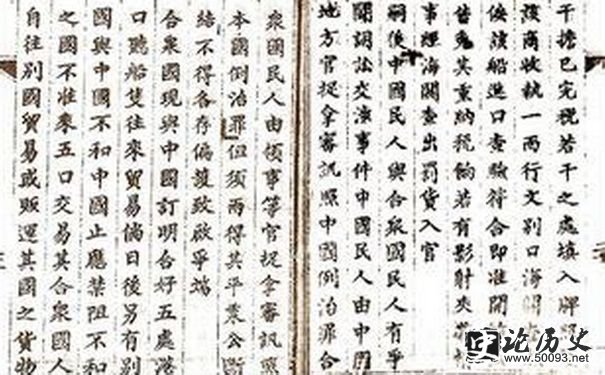 干擔已完稅若干之處填入牌
發商收執一面行文別口海關
俟該船進口查驗符合即准開
貨免其重納稅餉若有影射夾
事經海關查出罰貨入官
嗣後中國民人與合衆國民人有爭
鬪詞訟交涉事件中國民人由中國
地方官捉拿審訊照中國例治罪合
衆國民人由領事等官捉拿審訊照
本國例治罪但須兩得其平秉公斷
結不得各存偏護致啟爭端
合衆國現與中國訂明和好五處港
口聽船隻往來貿易倘日後另有別
國與中國不和中國止應禁阻不和
之國不准來五口交易其合衆國人
自往別國貿易或販運其國之貨物
论历史
www.50093.net